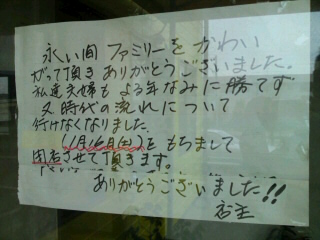 永い間 ファミリーを かわい
がって頂き ありがとうございました。
私達夫婦も よる年なみに 勝てず
又 時代の流れについて
行けなくなりました。
1月16日(土)を もちまして
閉店させて頂きます。
ありがとうございました!!
店主